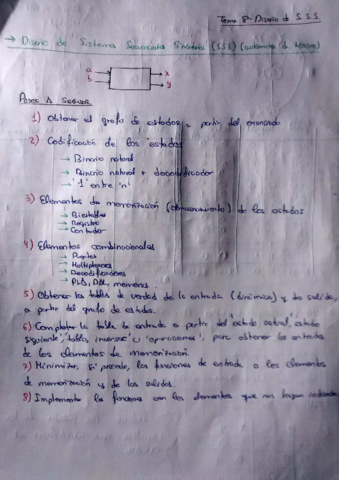 Tema 8 - Diseño de S.S.S.
→ Diseño de Sistemas Secuenciales Síncronos (S.S.S) (autómata de Moore)
a
b
x
y
PASOS A SEGUIR
1) Obtener el grafo de estados a partir del enunciado
2) Codificación de los estados
→ Binario natural
→ Binario natural + decodificador
→ '1' entre 'n'
3) Elementos de memorización (almacenamiento) de los estados
→ Biestables
→ Registro
→ Contador
4) Elementos combinacionales
→ Puertas
→ Multiplexores
→ Decodificadores
→ PLD, PAL, memorias
5) Obtener la tabla de verdad de la entrada (dinámica) y de salida,
a partir del grafo de estados.
6) Completar la tabla de entrada a partir del 'estado actual', 'estado
siguiente', 'tablas inversas' u 'operaciones', para obtener las entradas
de los elementos de memorización.
7) Minimizar, si procede, las funciones de entrada a los elementos
de memorización y de las salidas.
8) Implementar las funciones con los elementos que nos hayan indicado